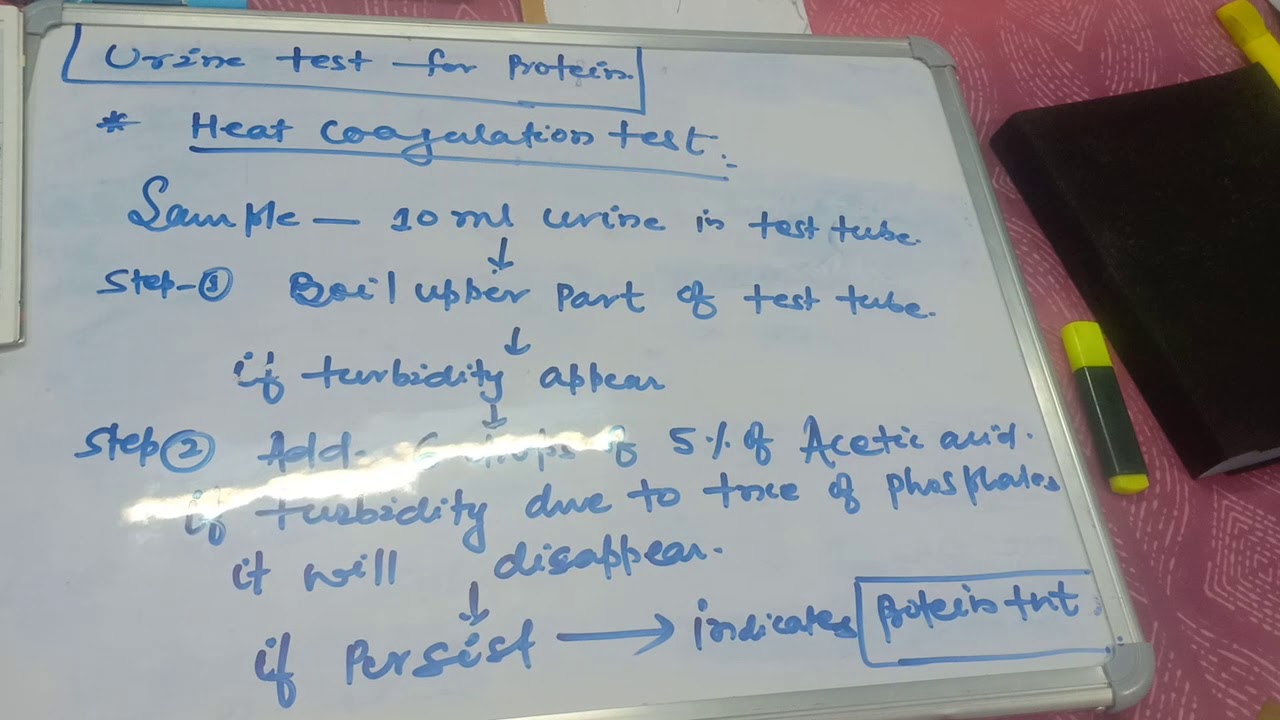 Urine test for Protein.
* Heat coagulation test:-
Sample — 10 ml urine in test tube.
↓
Step-① Boil upper part of test tube.
↓
if turbidity appear
↓
Step② Add 6 drops of 5% of Acetic acid.
if turbidity due to trace of phosphates
it will disappear.
↓
if Persist → indicates Protein